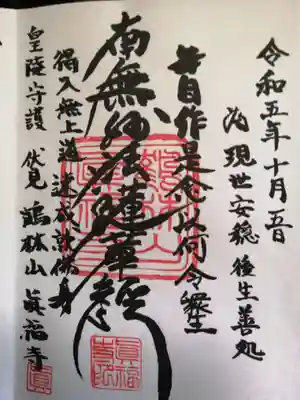 令和五年十月五日
為現世安穏後生善処
毎自作是念以何令衆生
南無妙法蓮華経
得入無上道速成就佛身
皇陵守護 伏見 鶴林山 眞福寺
眞福寺印